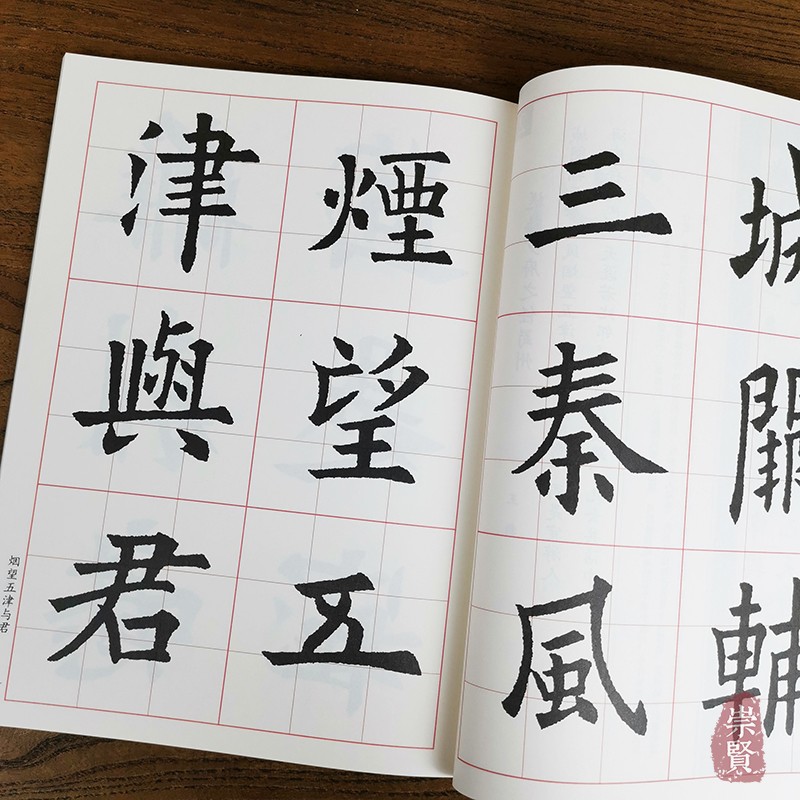 城闕輔
三秦風
煙望五
津與君
烟望五津与君
崇賢